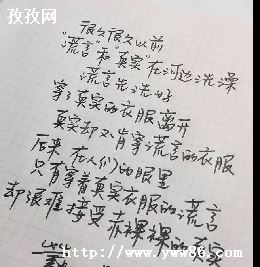 孜孜网
很久很久以前
"谎言"和"真实"在河边洗澡
谎言先洗好
穿了真实的衣服离开
真实却不肯穿谎言的衣服
后来 在人们的眼里
只有穿着真实衣服的谎言
却很难接受赤裸裸的真实
http://www.yww86.com